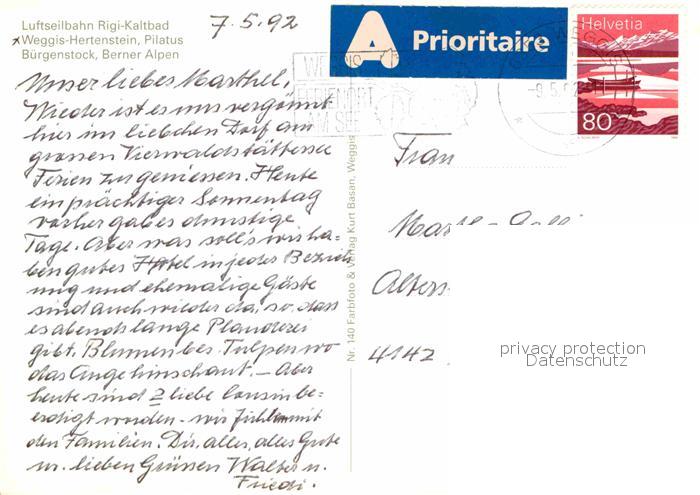 Luftseilbahn Rigi-Kaltbad
Weggis-Hertenstein, Pilatus
Bürgenstock, Berner Alpen
7.5.92
Unser liebes Marthel,
Wieder ist es uns vergönnt
hier im lieblichen Dorf am
grossen Vierwaldstättersee
Ferien zu geniessen. Heute
ein prächtiger Sonnentag
vorher gab es dunstige
Tage. Aber was soll's wir ha-
ben gutes Hotel in jeder Bezieh
ung und ehemalige Gäste
sind auch wieder da, so dass
es abends lange Plauderei
gibt. Blumen bes. Tulpen wo
das Auge hinschaut. – Aber
heute sind 2 liebe Cousin be-
erdigt worden - wir fühlen mit
den Familien. Dir, alles, alles Gute
m. lieben Grüssen Walter u.
Friedi.
Nr. 140 Farbfoto & Verlag Kurt Basan, Weggis
A Prioritaire
WEGGIS
FERIENORT
AM SEE
WEGGIS
-9.5.92
Helvetia
80
Frau
Alters
4142
privacy protection
Datenschutz